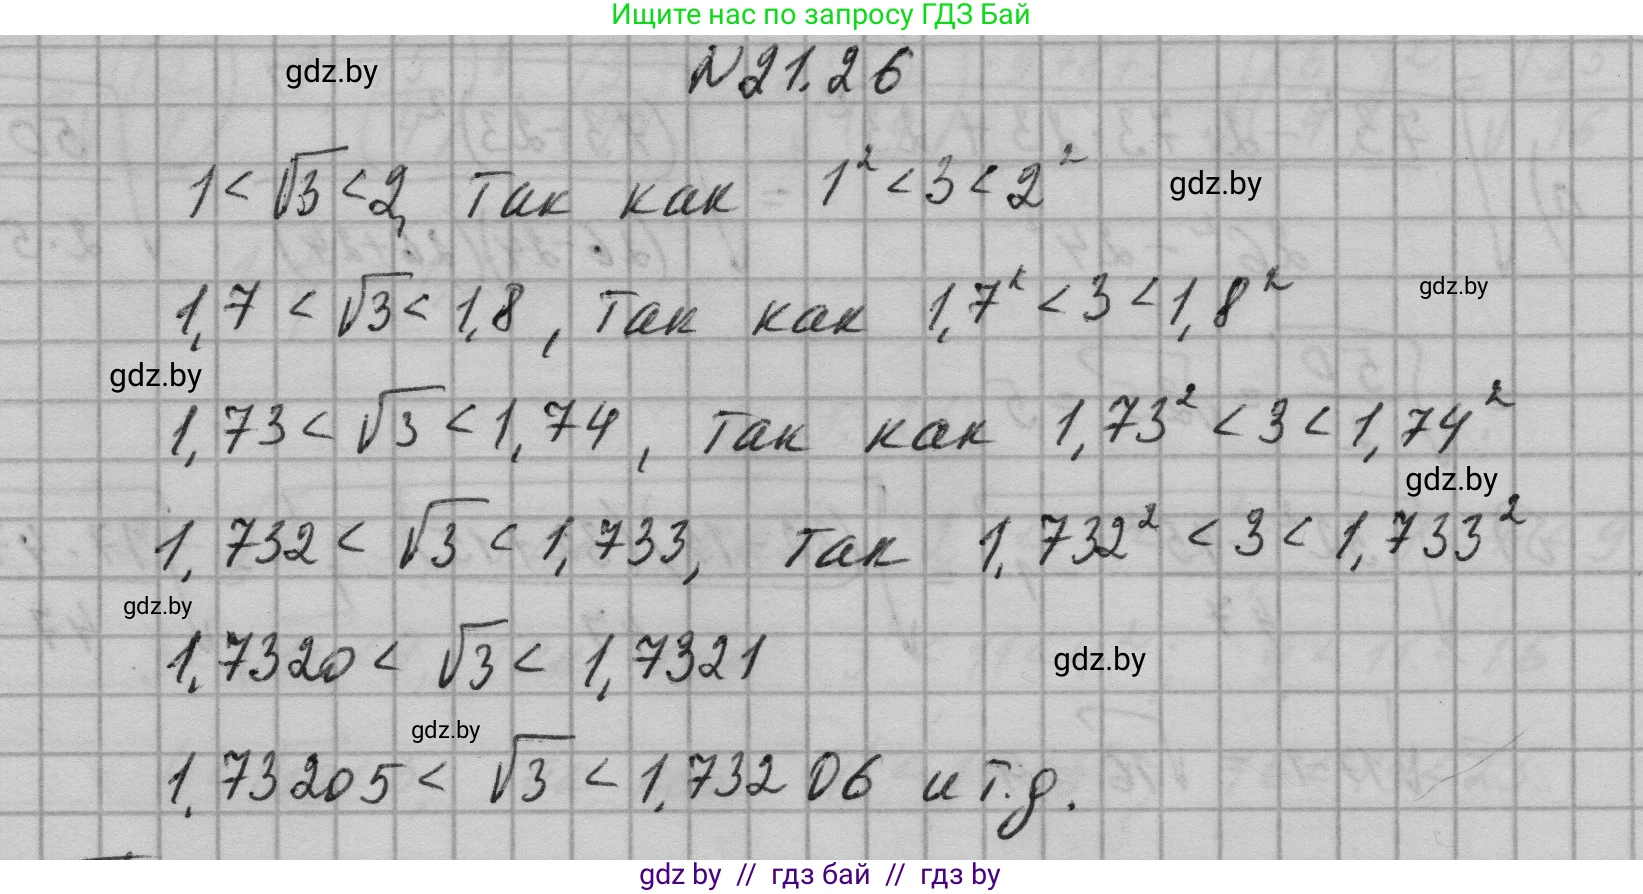 Ищите нас по запросу ГДЗ Бай
gdz.by
№21.26
1 < √3 < 2, так как 1² < 3 < 2²
gdz.by
1,7 < √3 < 1,8, так как 1,7² < 3 < 1,8²
gdz.by
gdz.by
1,73 < √3 < 1,74, так как 1,73² < 3 < 1,74²
gdz.by
1,732 < √3 < 1,733, так 1,732² < 3 < 1,733²
gdz.by
1,7320 < √3 < 1,7321
gdz.by
gdz.by
1,73205 < √3 < 1,73206 и т.д.
gdz by // гдз бай // гдз by